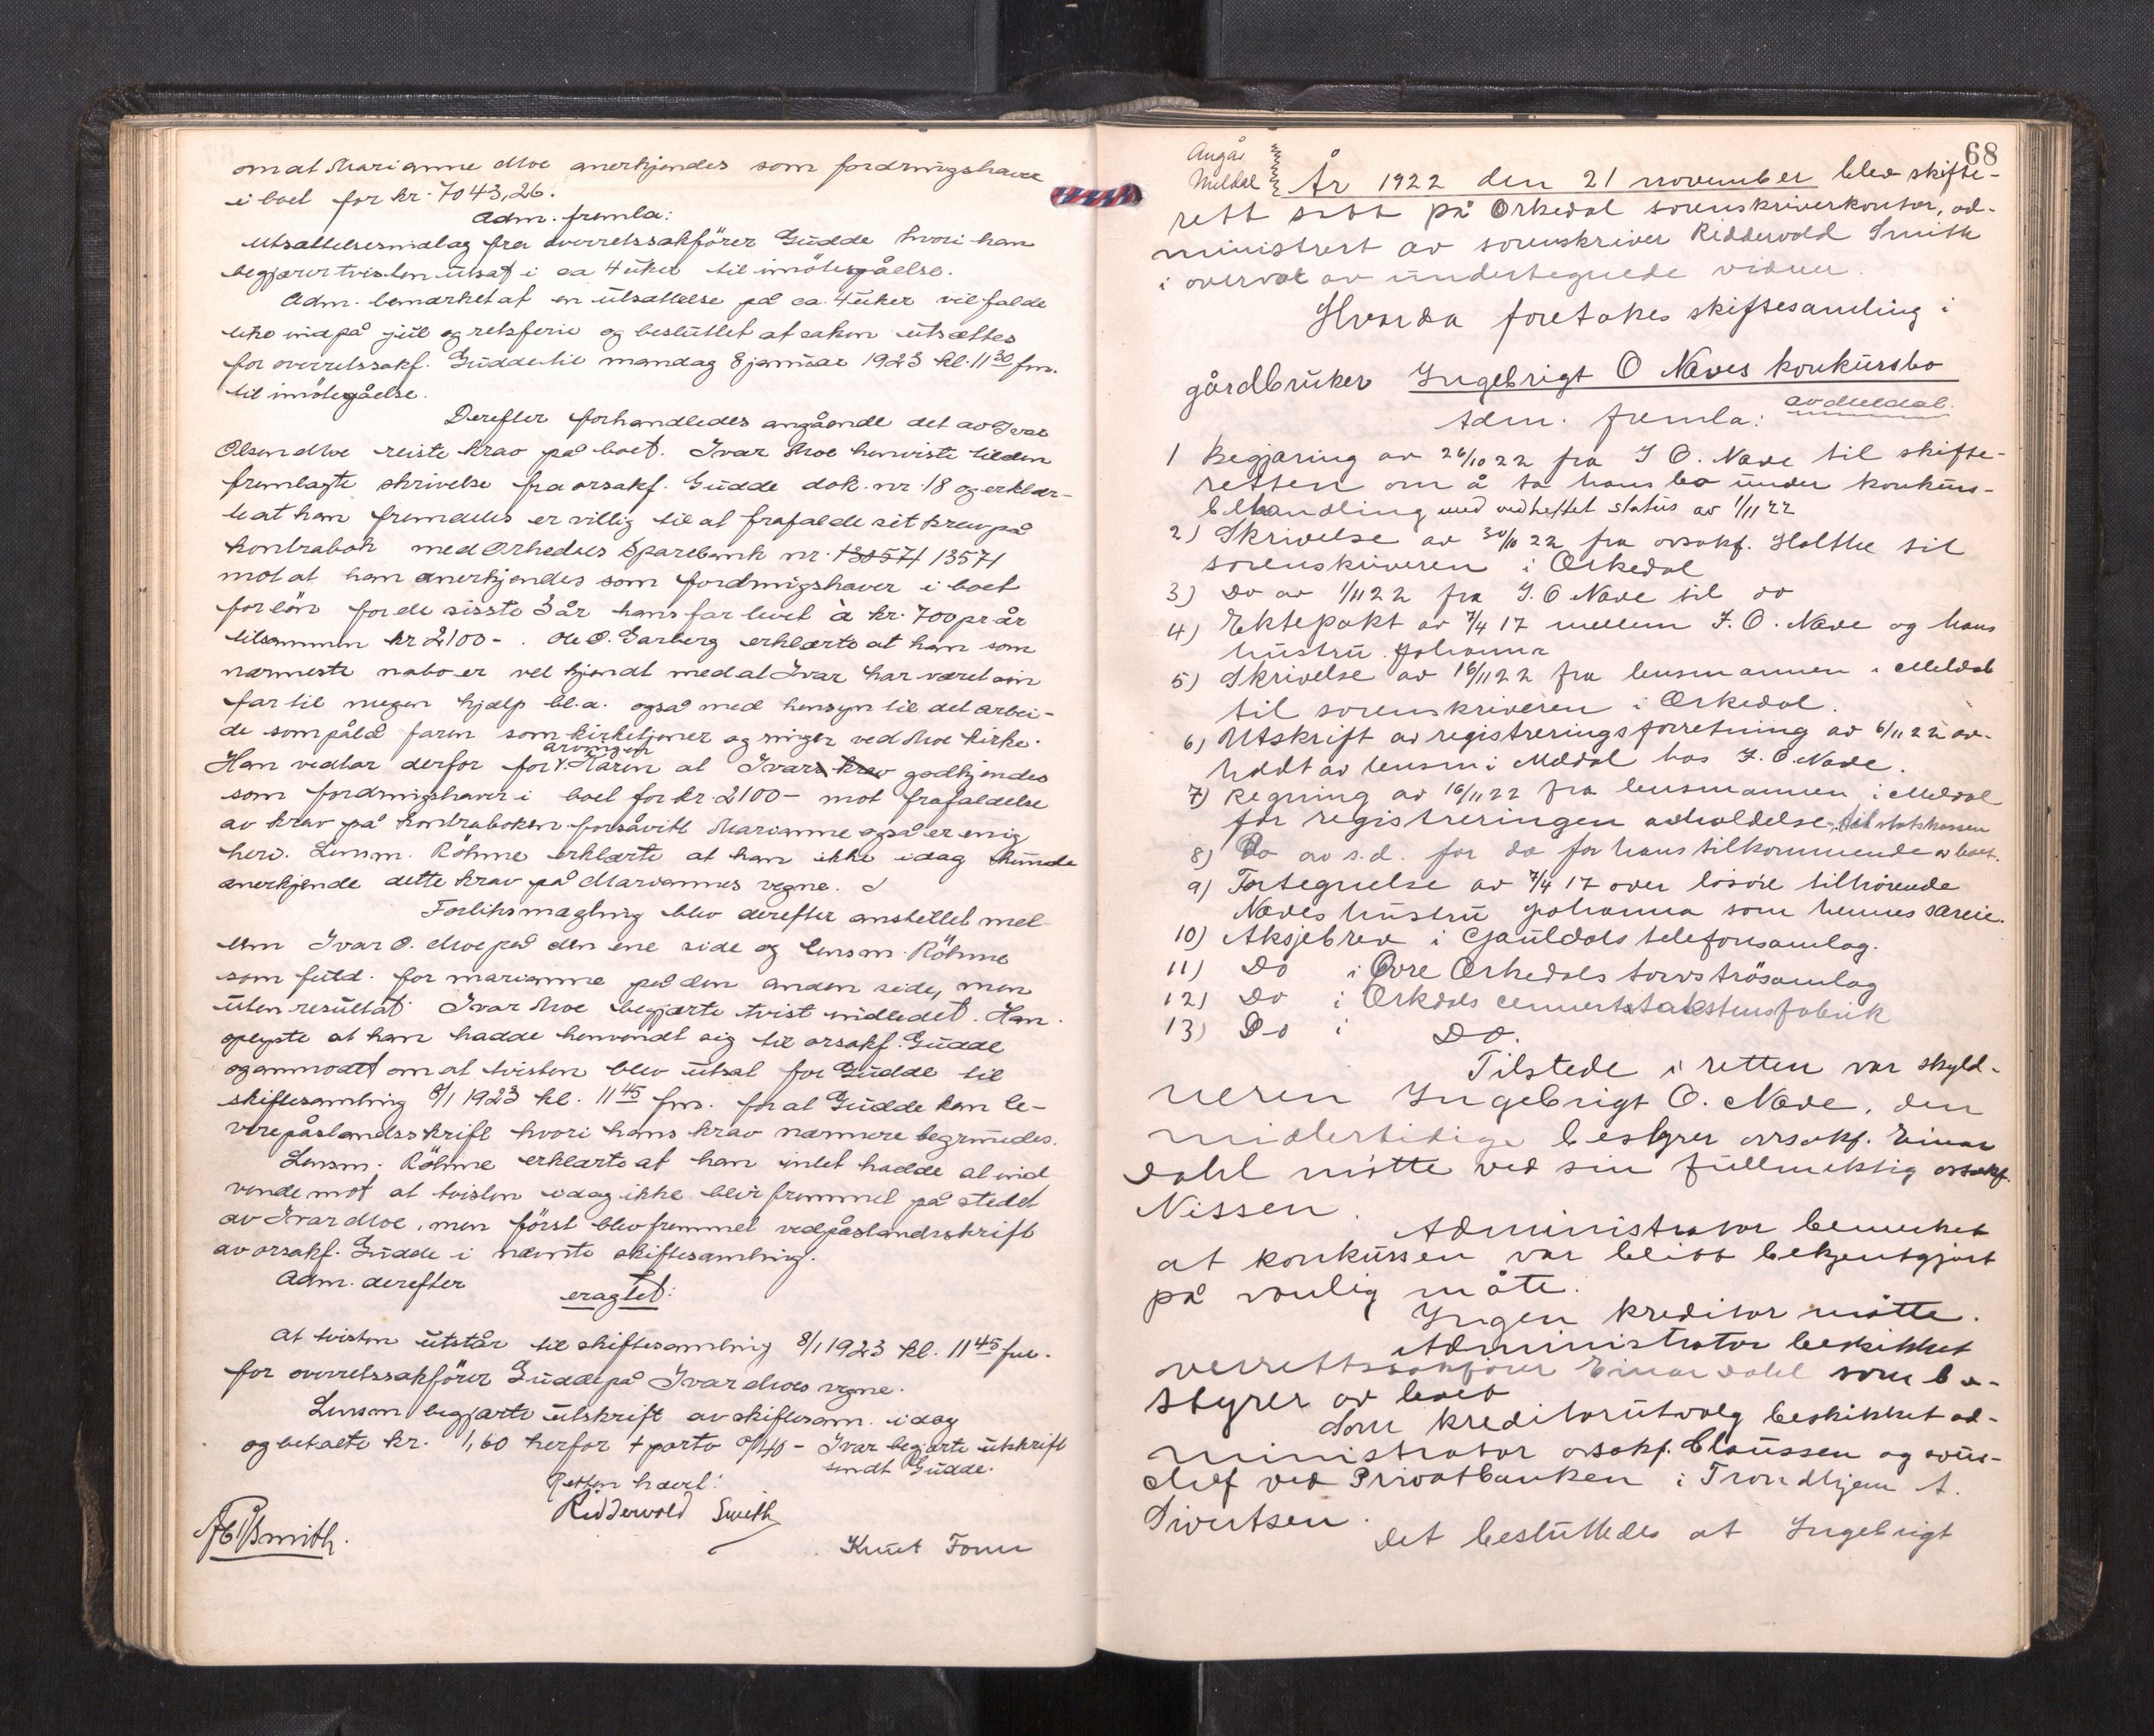 om at Marianne Moe anerkjendes som fordringshaver
i boet for kr. 7043,26.
Adm. fremla:
Utsættelsesindlæg fra overretssakfører Gudde hvori han
begjærer tvisten utsat i ca 4 uker til imøtegåelse.
Adm. bemærket at en utsættelse på ca. 4 uker vil falde
like ind på jul og retsferie og besluttet at saken utsættes
for overretssakf. Gudde til mandag 8 januar 1923 kl. 11 30 fm.
til imøtegåelse.
Derefter forhandledes angående det av Ivar
Olsen Moe reiste krav på boet. Ivar Moe henviste til den
fremlagte skrivelse fra orsakf. Gudde dok. nr. 18 og erklær-
te at han fremdeles er villig til at frafalde sit krav på
kontrabok med Orkedals Sparebank nr. 130571 13571
mot at han anerkjendes som fordringshaver i boet
for løn for de sisste 3 år hans far levet à kr. 700 pr år
tilsammen kr 2100 - . Ole O. Garberg erklærte at han som
nærmeste nabo er vel kjendt med at Ivar har været sin
far til megen hjælp bl.a. også med hensyn til det arbei-
de som pålå faren som kirketjener og ringer ved Moe kirke.
arvingen
Han vedtar derfor for v. Karen at Ivars krav godkjendes
som fordringshaver i boet for kr. 2100 - mot frafaldelse
av krav på kontraboken forsåvitt Marianne også er enig
heri. Lensm. Röhme erklærte at han ikke idag kunde
anerkjende dette krav på Mariannes vegne.
Forliksmægling blev derefter anstillet mel-
lem Ivar O. Moe på den ene side og lensm. Röhme
som fuld. for Marianne på den anden side, men
uten resultat. Ivar Moe begjærte tvist indledet. Han
oplyste at han hadde henvendt sig til orsakf. Gudde
og anmodet om at tvisten blev utsat for Gudde til
skiftesamling 8/1 1923 kl. 11 45 fm. for at Gudde kan le-
vere påstandsskrift hvori hans krav nærmere begrundes.
Lensm. Röhme erklærte at han intet hadde at ind
vende mot at tvisten idag ikke blir fremmet på stedet
av Ivar Moe, men først blev fremmet ved påstandsskrift
av orsakf. Gudde i nævnte skiftesamling.
Adm. derefter
eragtet:
At tvisten utstår til skiftesamling 8/1 1923 kl. 11 45 fm.
for overretssakfører Gudde på Ivar Moes vegne.
Lensm begjærte utskrift av skiftesam. idag
og betalte kr. 1,60 herfor + porto 0/40 - Ivar begjærte utskrift
sendt Gudde.
Retten hævet:
Ridderwold Smith
Smith.
Knut Fonn
68
Angår
Meldal
År 1922 den 21 november blev skifte-
rett satt på Orkedal sorenskriverkontor, ad-
ministrert av sorenskriver Ridderwold Smith
i overvær av undertegnede vidner.
Hvorda foretokes skiftesamling i
gårdbruker Ingebrigt O Næves konkursbo
av Meldal.
Adm. fremla:
1 Begjæring av 26/10 22 fra I O. Næve til skifte-
retten om å ta hans bo under konkurs-
behandling med vedheftet status av 1/11 22
2) Skrivelse av 30/10 22 fra orsakf. Holthe til
sorenskriveren i Orkedal
3) Do av 1/11 22 fra I. O Næve til do
4) Ektepakt av 7/4 17 mellem I. O. Næve og hans
hustru Johanna
5) Skrivelse av 16/11 22 fra lensmannen i Meldal
til sorenskriveren i Orkedal.
6) Utskrift av registreringsforretning av 6/11 22 av-
holdt av lensm i Meldal hos I. O. Næve.
7) Regning av 16/11 22 fra lensmannen i Meldal
for registreringen avholdelse, til statskassen
8) Do av s.d. for do for hans tilkommende av boet.
9) Fortegnelse av 7/4 17 over løsøre tilhørende
Næves hustru Johanna som hennes særeie.
10) Aksjebrev i Gauldals telefonsamlag.
11) Do i Øvre Orkedals torvstrøsamlag
12) Do i Orkdals cementtakstensfabrik
13) Do i Do.
Tilstede i retten var skyld-
neren Ingebrigt O. Næve, den
midlertidige bestyrer orsakf. Einar
Dahl møtte ved sin fullmektig orsakf.
Nissen.
Administrator bemerket
at konkursen var blitt bekjentgjort
på vanlig måte.
Ingen kreditor møtte.
Administrator beskikket
overrettssakfører Einar Dahl som be-
styrer av boet
Som kreditorutvalg beskikket ad-
ministrator orsakf. Claussen og avds-
chef ved Privatbanken i Trondhjem A.
Sivertsen.
Det besluttedes at Ingebrigt